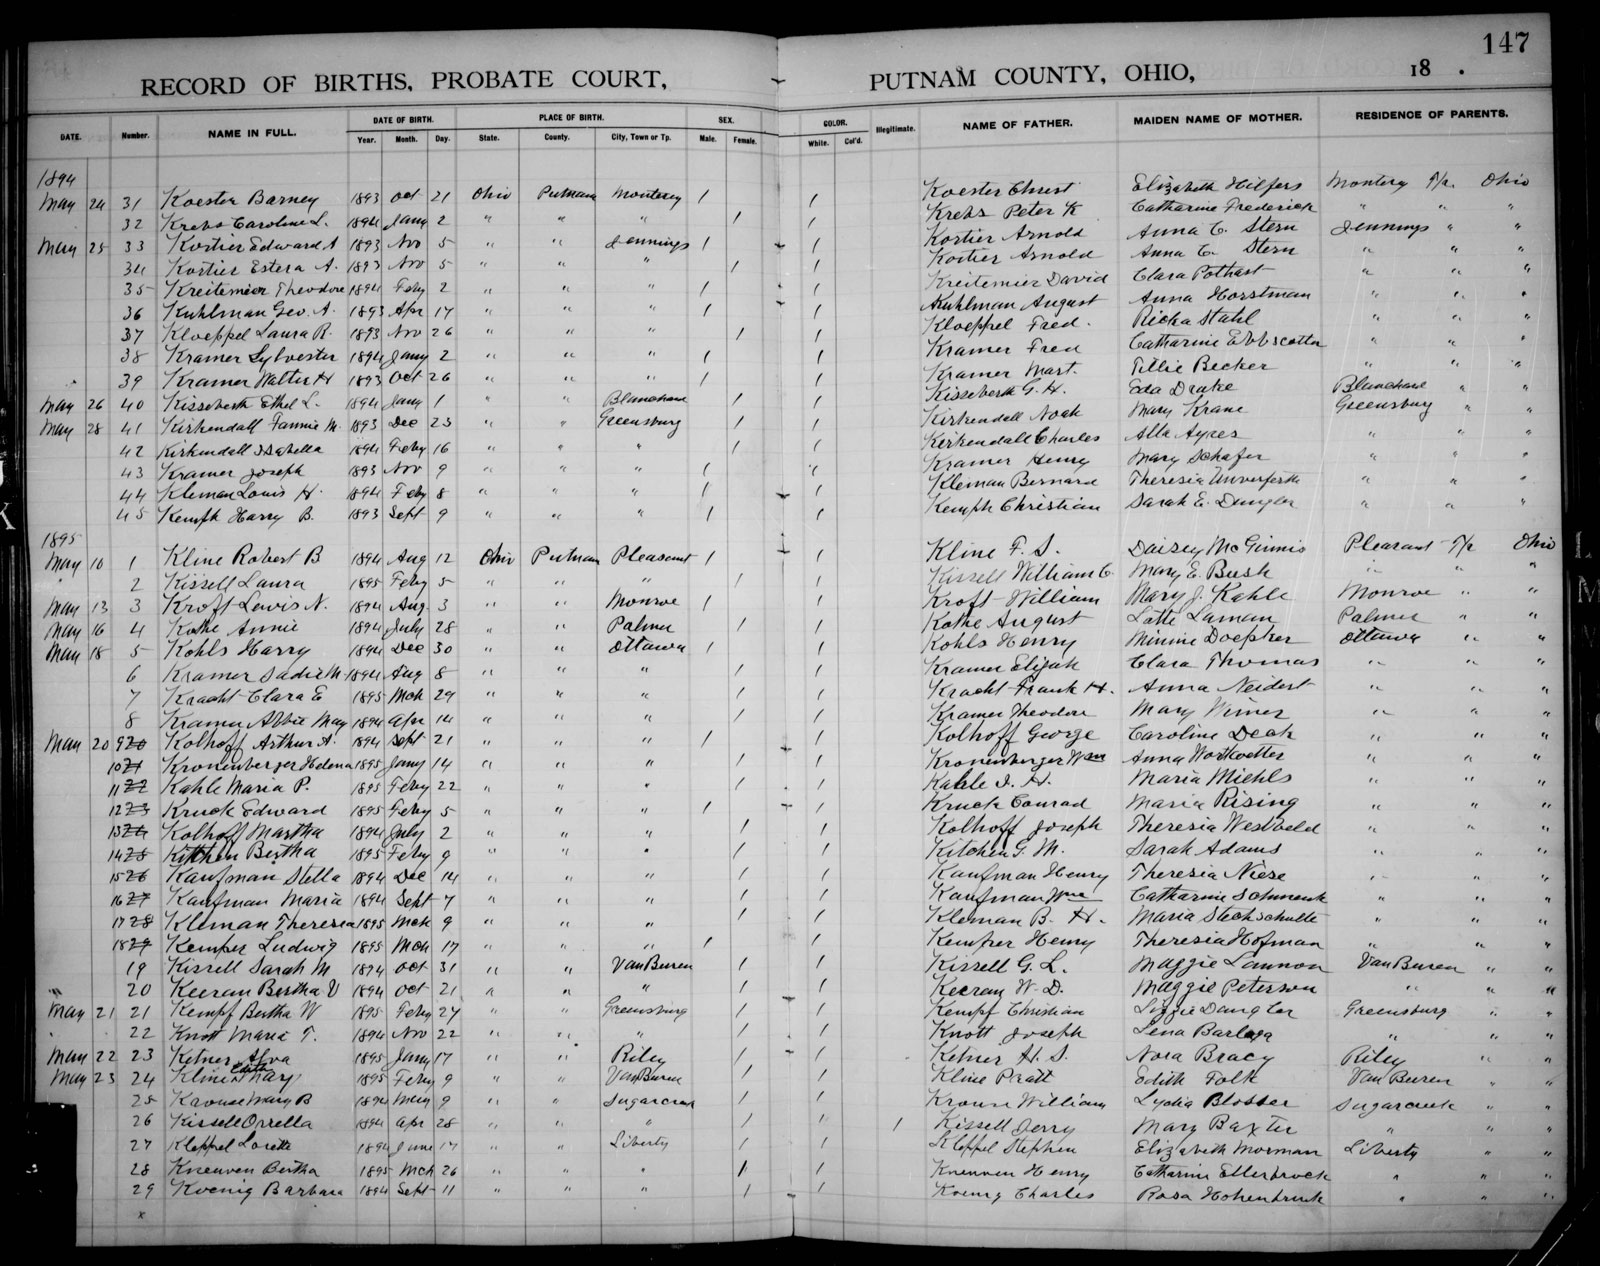 147
RECORD OF BIRTHS, PROBATE COURT, PUTNAM COUNTY, OHIO, 18 .
DATE. Number. NAME IN FULL. DATE OF BIRTH. PLACE OF BIRTH. SEX. COLOR. Illegitimate. NAME OF FATHER. MAIDEN NAME OF MOTHER. RESIDENCE OF PARENTS.
Year. Month. Day. State. County. City, Town or Tp. Male. Female. White. Col'd.
1894
May 24 31 Koester Barney 1893 Oct 21 Ohio Putnam Monterey 1 1 Koester Christ Elizabeth Hilfers Montery T/p. Ohio
32 Krebs Caroline L. 1894 Jany 2 " " " 1 1 Krebs Peter K Catharine Frederick " " "
May 25 33 Kortier Edward A 1893 Nov 5 " " Jennings 1 1 Kortier Arnold Anna C. Stern Jennings " "
34 Kortier Estera A. 1893 Nov 5 " " " 1 1 Kortier Arnold Anna C. Stern " " "
35 Kreitemier Theodore 1894 Feby 2 " " " 1 1 Kreitemier David Clara Pothast " " "
36 Kuhlman Geo. A. 1893 Apr 17 " " " 1 1 Kuhlman August Anna Horstman " " "
37 Kloeppel Laura R. 1893 Nov 26 " " " 1 1 Kloeppel Fred. Ricka Stahl " " "
38 Kramer Sylvester 1894 Jany 2 " " " 1 1 Kramer Fred Catharine " " "
39 Kramer Walter H 1893 Oct 26 " " " 1 1 Kramer Mart. Tillie Becker " " "
May 26 40 Kisseberth Ethel L. 1894 Jany 1 " " Blanchard 1 1 Kisseberth G. H. Eda Drake Blanchard " "
May 28 41 Kirkendall Fannie M. 1893 Dec 23 " " Greensburg 1 1 Kirkendall Noah Mary Krane Greensburg " "
42 Kirkendall Isabella 1894 Feby 16 " " " 1 1 Kirkendall Charles Alla Ayres " " "
43 Kramer Joseph 1893 Nov 9 " " " 1 1 Kramer Henry Mary Schafer " " "
44 Kleman Louis H. 1894 Feby 8 " " " 1 1 Kleman Bernard Theresia Unverferth " " "
45 Kemph Harry B. 1893 Sept 9 " " " 1 1 Kemph Christian Sarah E. Dangler " " "
1895
May 10 1 Kline Robert B 1894 Aug 12 Ohio Putnam Pleasant 1 1 Kline F. S. Daisey McGinnis Pleasant T/p Ohio
2 Kissell Laura 1895 Feby 5 " " " 1 1 Kissell William C. Mary E. Bush " " "
May 13 3 Kroft Lewis N. 1894 Aug. 3 " " Monroe 1 1 Kroft William Mary J. Kahle Monroe " "
May 16 4 Kothe Annie 1894 July 28 " " Palmer 1 1 Kothe August Lotte Laman Palmer " "
May 18 5 Kohls Harry 1894 Dec 30 " " Ottawa 1 1 Kohls Henry Minnie Doepker Ottawa " "
6 Kramer Sadie M. 1894 Aug 8 " " " 1 1 Kramer Elijah Clara Thomas " " "
7 Kracht Clara E 1895 Mch 29 " " " 1 1 Kracht Frank H. Anna Neidert " " "
8 Kramer Abbie May 1894 Apr 14 " " " 1 1 Kramer Theodore Mary Wimer " " "
May 20 9 20 Kolhoff Arthur A. 1894 Sept 21 " " " 1 1 Kolhoff George Caroline Deck " " "
10 21 Kronenberger Helena 1895 Jany 14 " " " 1 1 Kronenberger Wm Anna " " "
11 22 Kahle Maria P. 1895 Feby 22 " " " 1 1 Kahle J. H. Maria Miehls " " "
12 23 Kruck Edward 1895 Feby 5 " " " 1 1 Kruck Conrad Maria Rising " " "
13 24 Kolhoff Martha 1894 July 2 " " " 1 1 Kolhoff Joseph Theresia Westbeld " " "
14 25 Kitchen Bertha 1895 Feby 9 " " " 1 1 Kitchen G. M. Sarah Adams " " "
15 26 Kaufman Stella 1894 Dec 14 " " " 1 1 Kaufman Henry Theresia Niese " " "
16 27 Kaufman Maria 1894 Sept 7 " " " 1 1 Kaufman Wm Catharine Schmenk " " "
17 28 Kleman Theresia 1895 Mch 9 " " " 1 1 Kleman B. H. Maria Steckschulte " " "
18 29 Kemper Ludwig 1895 Mch 17 " " " 1 1 Kemper Henry Theresia Hofman " " "
19 Kissell Sarah M 1894 Oct 31 " " VanBuren 1 1 Kissell G. L. Maggie Lannon VanBuren " "
" 20 Keeran Bertha V 1894 Oct 21 " " " 1 1 Keeran W. D. Maggie Peterson " " "
May 21 21 Kempf Bertha W 1895 Feby 24 " " Greensburg 1 1 Kempf Christian Lizzie Dangler Greensburg " "
22 Knott Maria T. 1894 Nov 22 " " " 1 1 Knott Joseph Lena Barlage " " "
May 22 23 Ketner Alva 1895 Jany 17 " " Riley 1 1 Ketner H. S. Nora Bracy Riley " "
May 23 24 Kline Edith Mary 1895 Feby 9 " " VanBuren 1 1 Kline Pratt Edith Folk Van Buren " "
25 Krouse Mary B 1894 May 9 " " Sugarcreek 1 1 Krouse William Lydia Blosser Sugarcreek " "
26 Kissell Orrella 1894 Apr 28 " " " 1 1 1 Kissell Jerry Mary Baxter " " "
27 Kleppel Loretta 1894 June 17 " " Liberty 1 1 Kleppel Stephen Elizabeth Morman Liberty " "
28 Knueven Bertha 1895 Mch 26 " " " 1 1 Knueven Henry Catharine Ellerbrock " " "
29 Koenig Barbara 1894 Sept 11 " " " 1 1 Koenig Charles Rosa Hohenbrink " " "
x